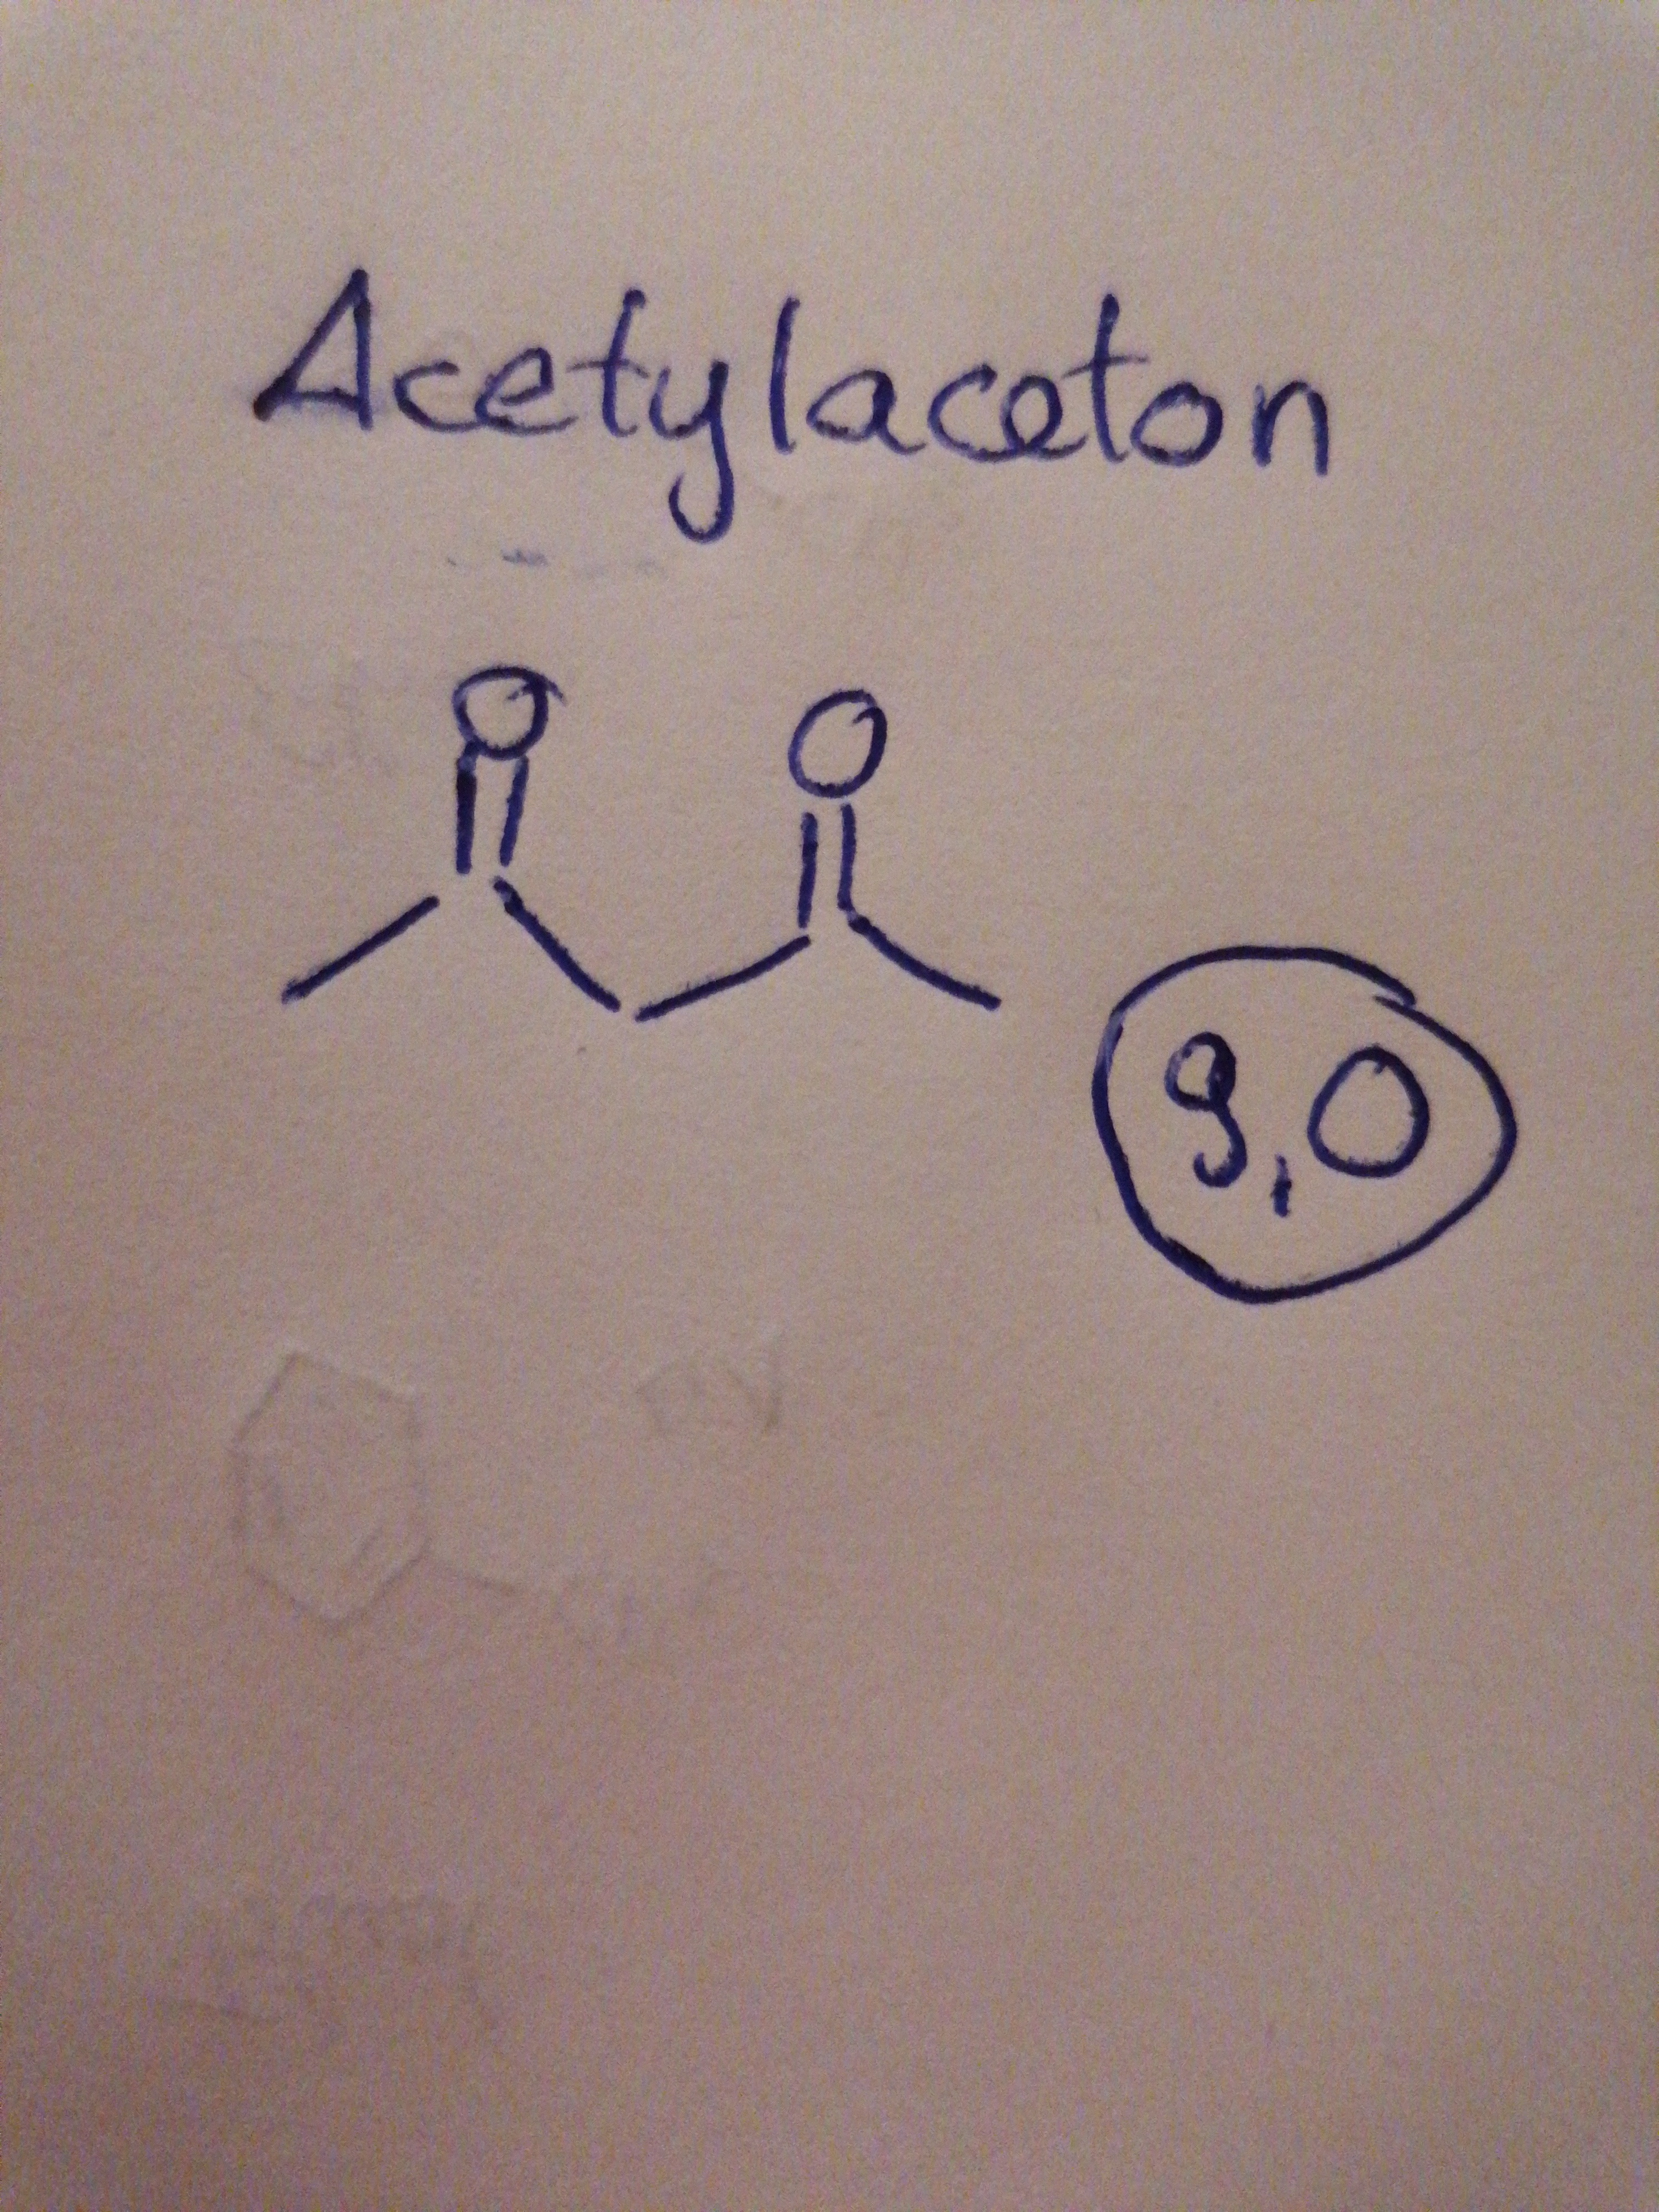 Acetylaceton
O O
9,0